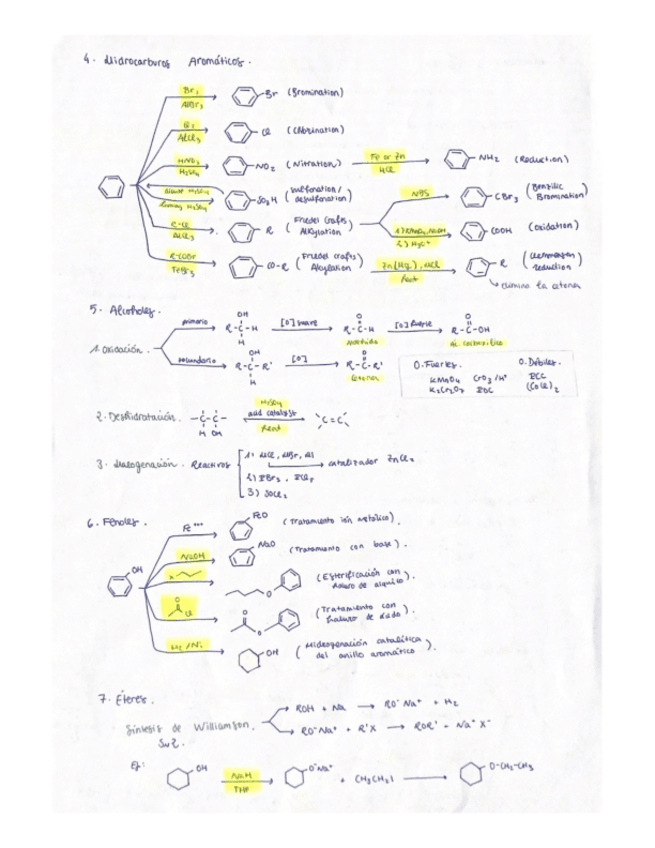 4. Hidrocarburos Aromáticos.
Br2
AlBr3
Br (Bromination)
Cl2
AlCl3
Cl (Chlorination)
HNO3
H2SO4
NO2 (Nitration)
Fe or Zn
HCl
NH2 (Reduction)
dilute H2SO4
fuming H2SO4
SO3H (sulfonation/ desulfonation)
NBS
CBr3 (Benzilic Bromination)
R-Cl
AlCl3
R (Friedel Crafts Alkylation)
1) KMnO4, NaOH
2) H3O+
COOH (oxidation)
R-COBr
FeBr3
CO-R (Friedel crafts Alcylation)
Zn(Hg), HCl
heat
R (Clemmensen reduction)
elimino la cetona
5. Alcoholes.
1. Oxidación.
primario
OH
R-C-H
H
[O] suave
O
R-C-H
aldehido
[O] fuerte
O
R-C-OH
ác. carboxílico
secundario
OH
R-C-R'
H
[O]
O
R-C-R'
Cetona
O. Fuertes. O. Débiles.
KMnO4 CrO3/H+ PCC
K2Cr2O7 PDC (COCl)2
2. Deshidratación.
-C-C-
H OH
H2SO4
acid catalyst
heat
C=C
3. Halogenación. Reactivos
1) HCl, HBr, HI
catalizador ZnCl2
2) PBr3, PCl5
3) SOCl2
6. Fenoles.
OH
Fe+++
FeO (Tratamiento ión metálico).
NaOH
NaO (Tratamiento con base).
X
O (Esterificación con haluro de alquilo).
O
Cl
O
O (Tratamiento con haluro de ácido).
H2/Ni
OH (Hidrogenación catalítica del anillo aromático).
7. Éteres.
Síntesis de Williamson.
SN2.
ROH + Na → RO-Na+ + H2
RO-Na+ + R'X → ROR' + Na+X-
Ej:
OH
NaH
THF
O-Na+
+ CH3CH2I
O-CH2-CH3